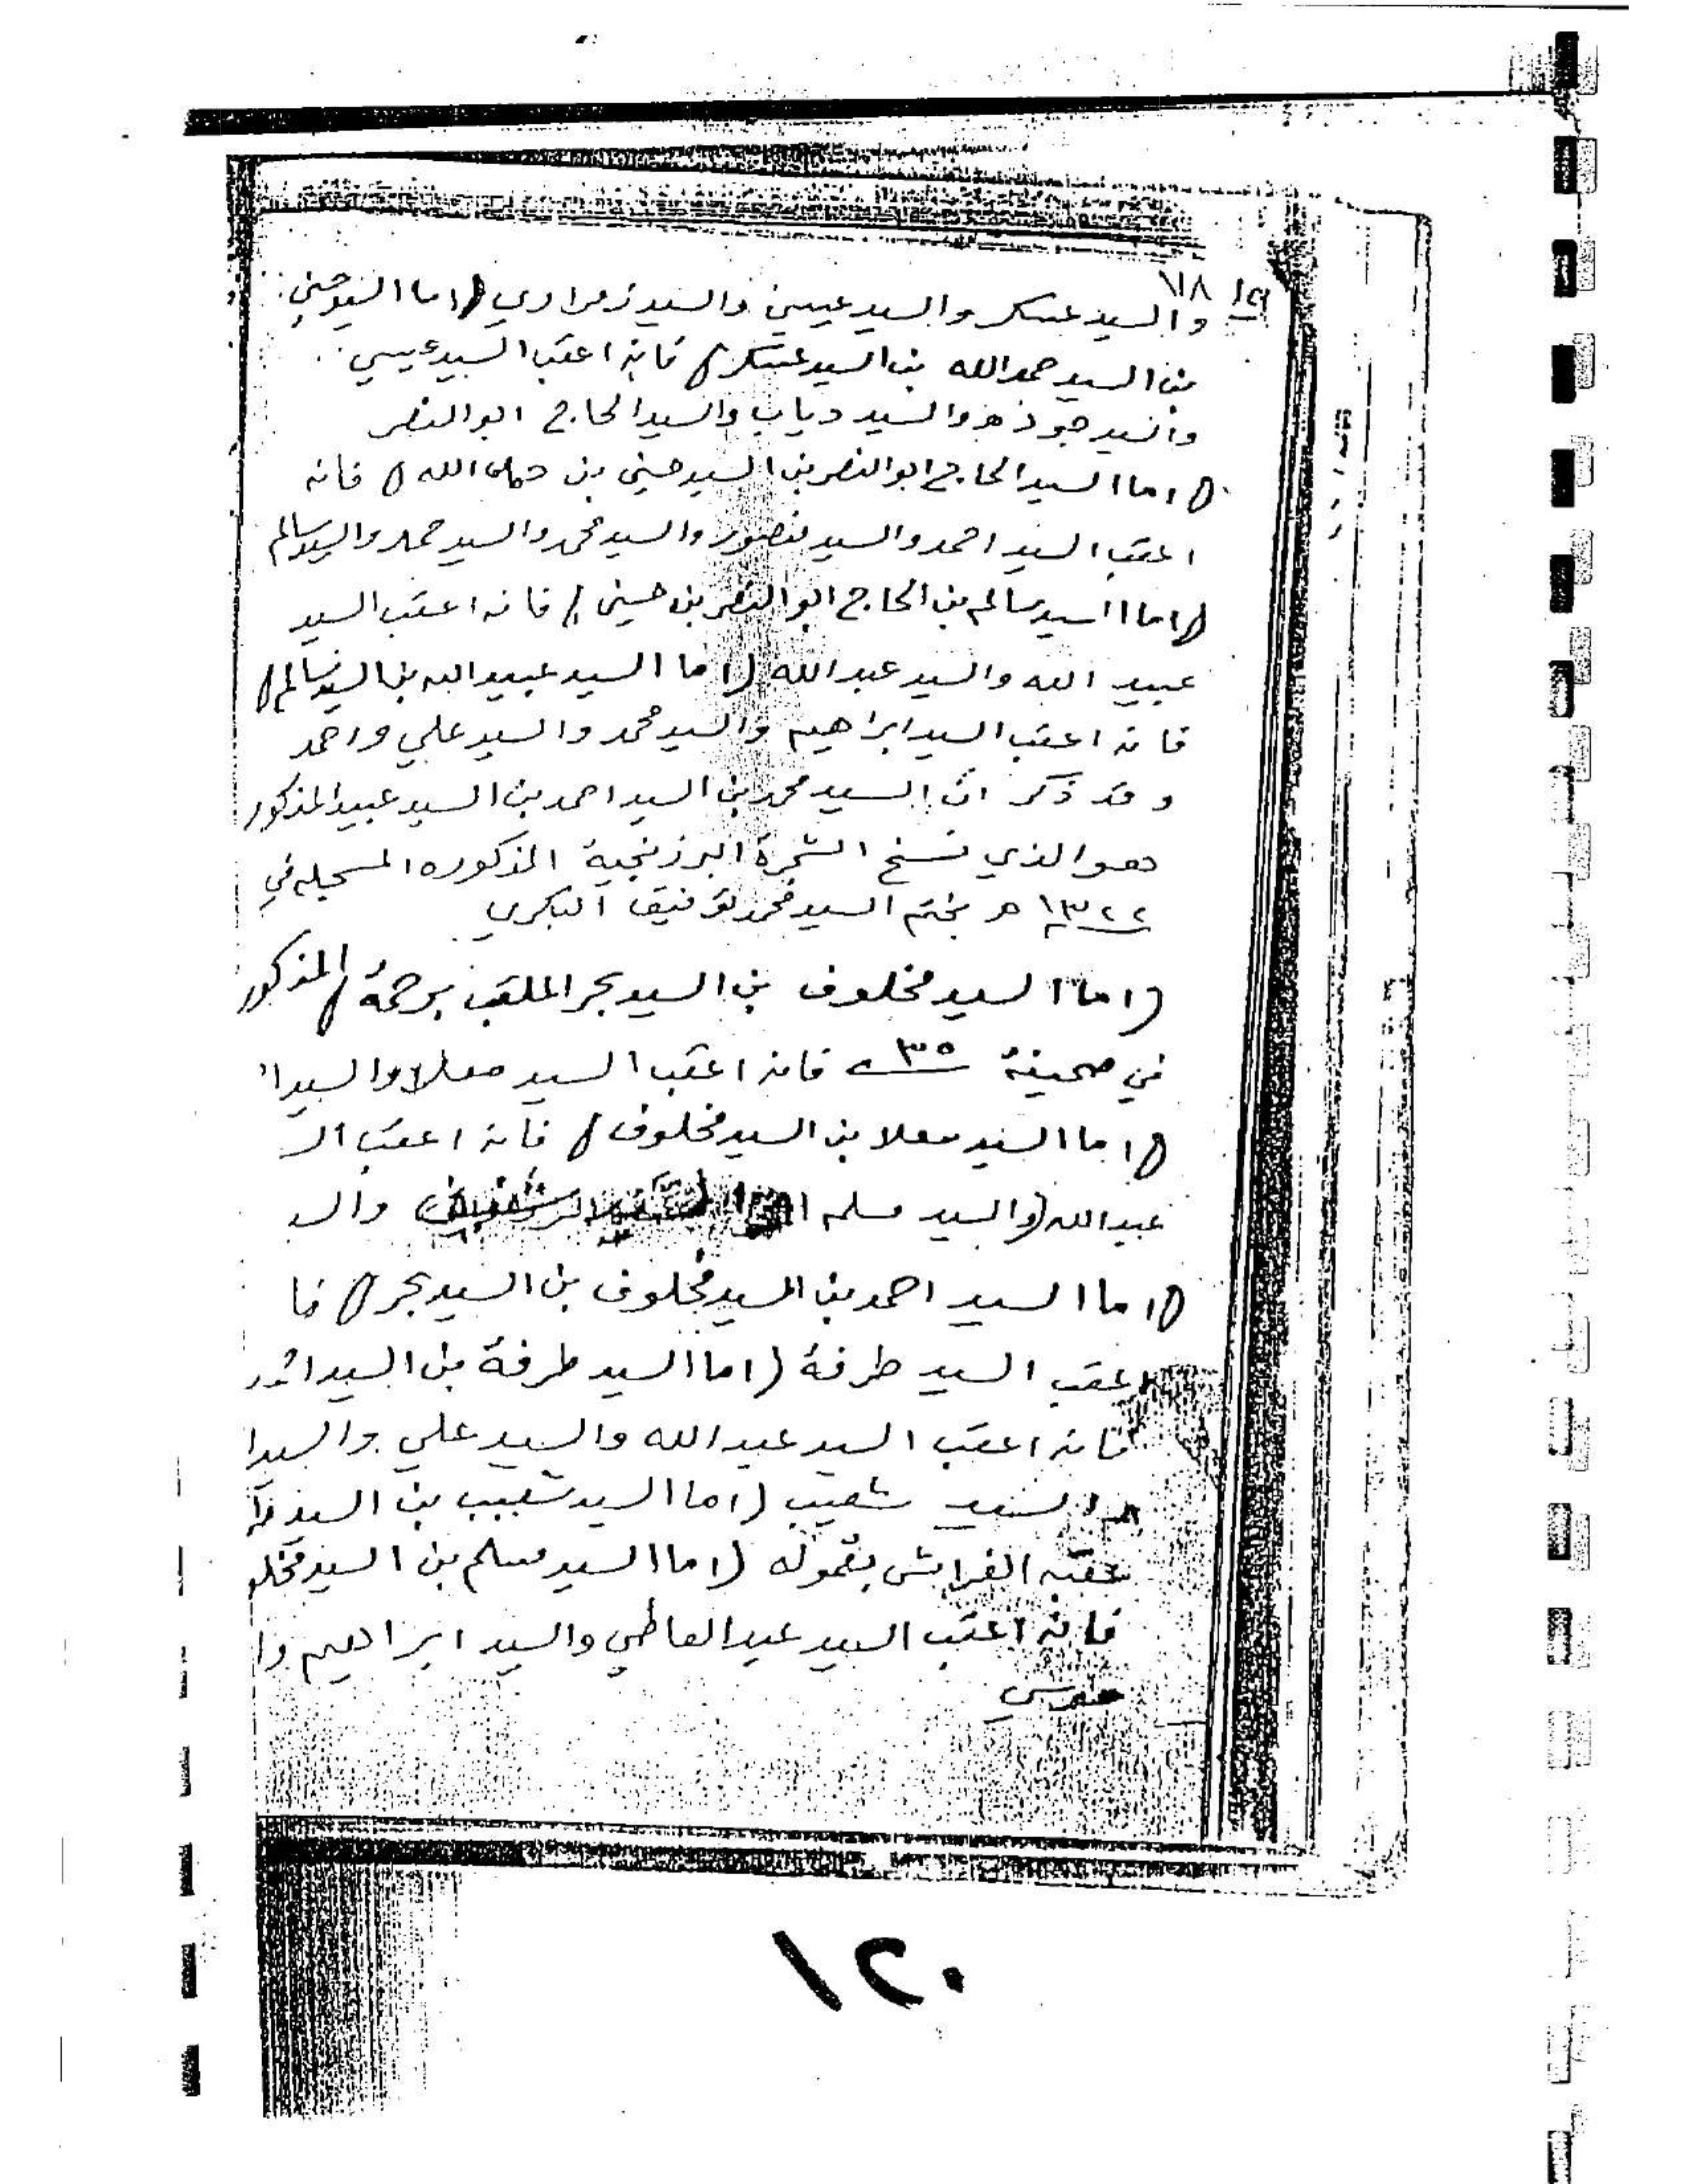 ٧١٨
والسيد عسكر والسيد عيسى والسيد زمراري (اما السيد حسيني
بن السيد حمد الله بن السيد عسكر) فانه اعقب السيد عيسي
والسيد جوذه والسيد دياب والسيد الحاج ابو النصر
(اما السيد الحاج ابو النصر بن السيد حسيني بن حمد الله) فانه
اعقب السيد احمد والسيد منصور والسيد محمد والسيد حمد والسيد سالم
(اما السيد سالم بن الحاج ابو النصر بن حسيني) فانه اعقب السيد
عبيد الله والسيد عبد الله (اما السيد عبيد الله بن السيد سالم)
فانه اعقب السيد ابراهيم والسيد محمد والسيد علي واحمد
وقد ذكر ان السيد محمد بن السيد احمد بن السيد عبيد المذكور
هو الذي نسخ الشجرة البرزنجية المذكوره المسجله في
١٣٢٢ هـ بختم السيد محمد توفيق البكري
(اما السيد مخلوف بن السيد بحر الملقب برحمة) المذكور
في صحيفة ٣٥ فانه اعقب السيد معلا والسيد ا
(اما السيد معلا بن السيد مخلوف) فانه اعقب الـ
عبد الله (والسيد مسلم والـ
(اما السيد احمد بن السيد مخلوف بن السيد بحر) فا
اعقب السيد طرفة (اما السيد طرفة بن السيد
فانه اعقب السيد عبد الله والسيد علي والسيد ا
والسيد شعيب (اما السيد شعيب بن السيد
عقبه الفرايش بقموله (اما السيد مسلم بن السيد مخلو
فانه اعقب السيد عبد العاطي والسيد ابراهيم وا
١٢٠